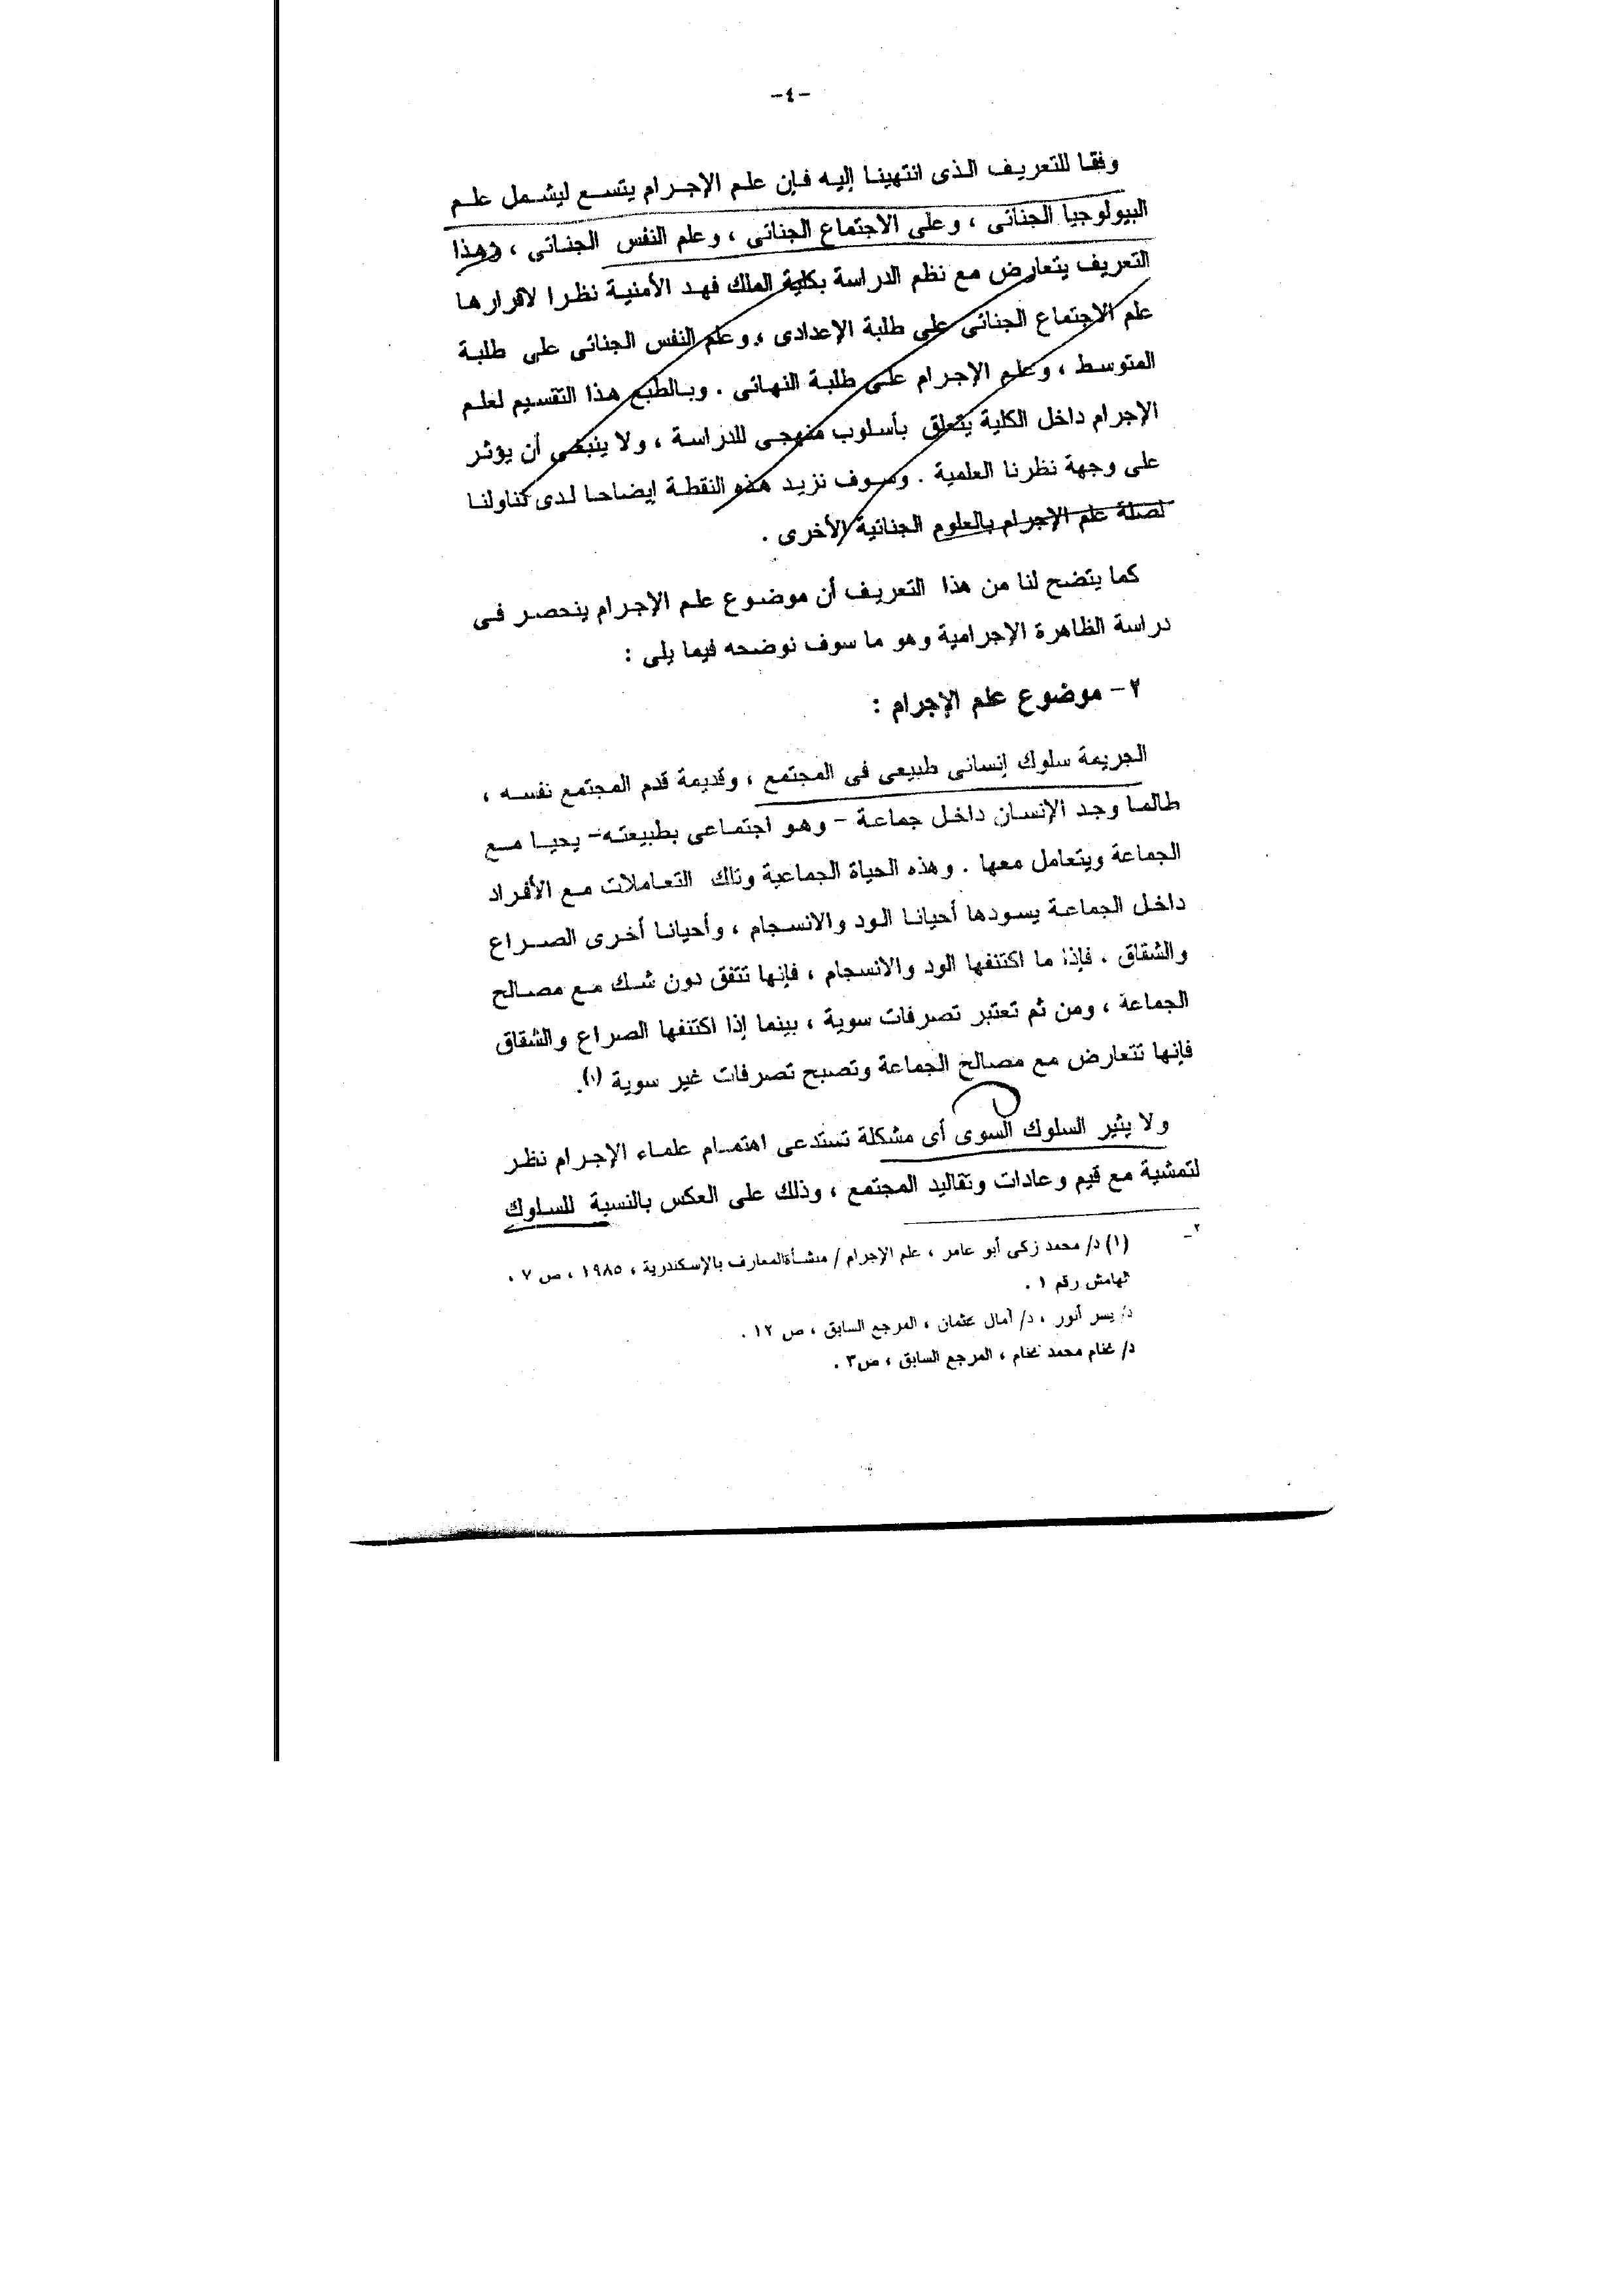 -٤-
وفقا للتعريف الذى انتهينا إليه فإن علم الإجرام يتسع ليشمل علم
البيولوجيا الجنائى ، وعلى الاجتماع الجنائى ، وعلم النفس الجنائى ، وهذا
التعريف يتعارض مع نظم الدراسة بكلية الملك فهد الأمنية نظرا لاقرارها
علم الاجتماع الجنائى على طلبة الإعدادى ، وعلم النفس الجنائى على طلبة
المتوسط ، وعلم الإجرام على طلبة النهائى . وبالطبع هذا التقسيم لعلم
الإجرام داخل الكلية يتعلق بأسلوب منهجى للدراسة ، ولا ينبغى أن يؤثر
على وجهة نظرنا العلمية . وسوف نزيد هذه النقطة إيضاحا لدى تناولنا
لصلة علم الإجرام بالعلوم الجنائية الأخرى .
كما يتضح لنا من هذا التعريف أن موضوع علم الإجرام ينحصر فى
دراسة الظاهرة الإجرامية وهو ما سوف نوضحه فيما يلى :
٢- موضوع علم الإجرام :
الجريمة سلوك إنسانى طبيعى فى المجتمع ، وقديمة قدم المجتمع نفسه ،
طالما وجد الإنسان داخل جماعة - وهو اجتماعى بطبيعته- يحيا مع
الجماعة ويتعامل معها . وهذه الحياة الجماعية وتلك التعاملات مع الأفراد
داخل الجماعة يسودها أحيانا الود والانسجام ، وأحيانا أخرى الصراع
والشقاق . فإذا ما اكتنفها الود والانسجام ، فإنها تتفق دون شك مع مصالح
الجماعة ، ومن ثم تعتبر تصرفات سوية ، بينما إذا اكتنفها الصراع والشقاق
فإنها تتعارض مع مصالح الجماعة وتصبح تصرفات غير سوية (١).
ولا يثير السلوك السوى أى مشكلة تستدعى اهتمام علماء الإجرام نظر
لتمشية مع قيم وعادات وتقاليد المجتمع ، وذلك على العكس بالنسبة للسلوك
٢_
(١) د/ محمد زكى أبو عامر ، علم الإجرام / منشأة المعارف بالإسكندرية ، ١٩٨٥ ، ص ٧ .
لهامش رقم ١ .
د/ يسر أنور ، د/ أمال عثمان ، المرجع السابق ، ص ١٢ .
د/ غنام محمد غنام ، المرجع السابق ، ص٣ .